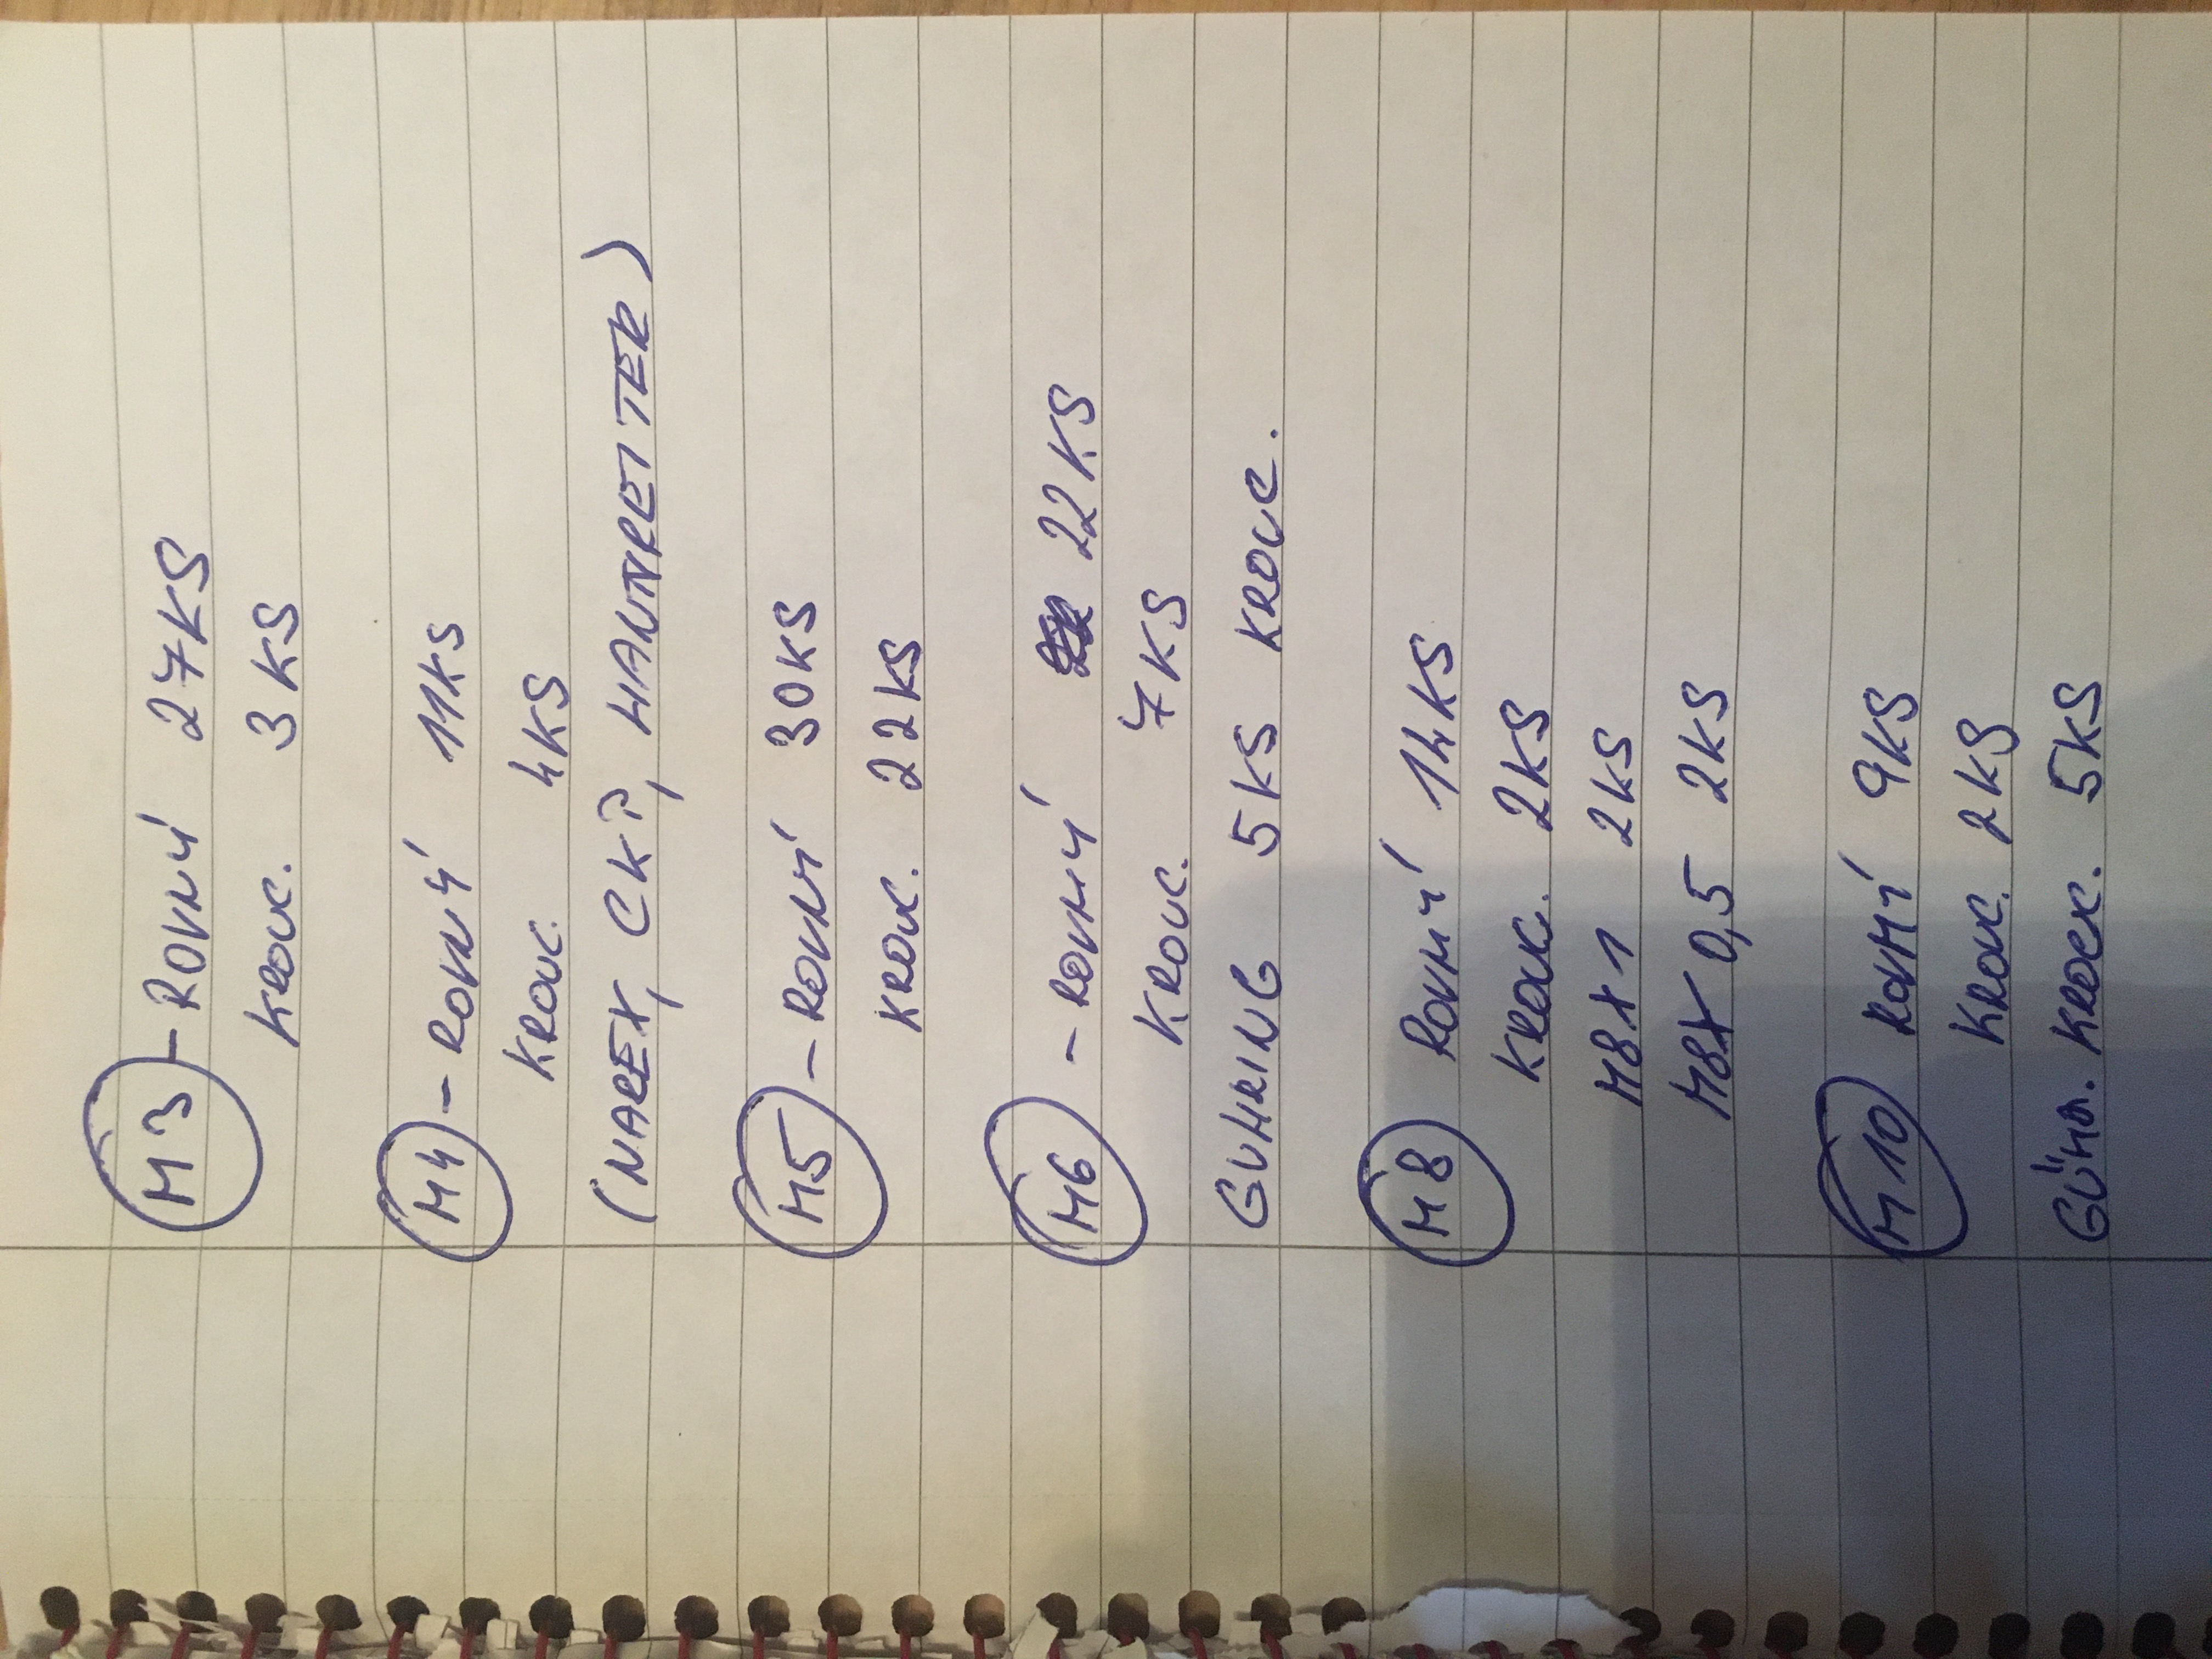 M3 - ROVNÝ 27KS
KROUC. 3 KS
M4 - ROVNÝ 11KS
KROUC. 4KS
(NAREX, CKP, HAUNREITER)
M5 - ROVNÝ 30KS
KROUC. 22KS
M6 - ROVNÝ 22KS
KROUC. 7KS
GUHRING 5KS KROUC.
M8 ROVNÝ 14KS
KROUC. 2KS
M8X1 2KS
M8X0,5 2KS
M10 ROVNÝ 9KS
KROUC. 2KS
KROUC. 5KS